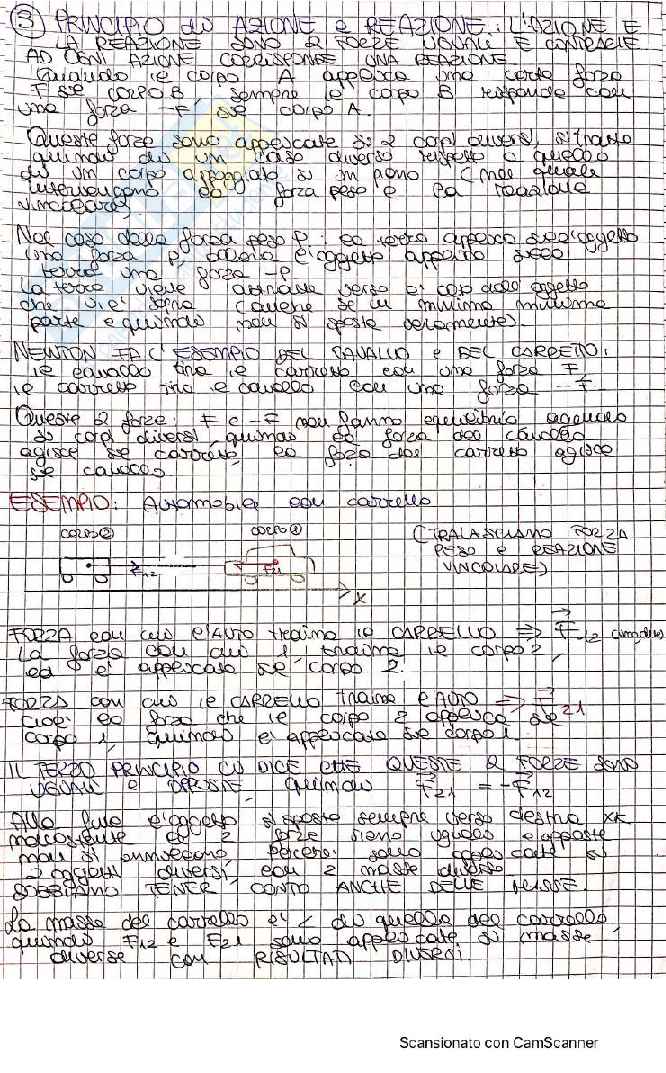 ③ PRINCIPIO di AZIONE e REAZIONE: L'AZIONE E
LA REAZIONE SONO 2 FORZE UGUALI E CONTRARIE
AD OGNI AZIONE CORRISPONDE UNA REAZIONE
Quando il corpo A applica una certa forza
F sul CORPO B sempre il corpo B risponde con
una forza -F sul corpo A.
Queste forze sono applicate su 2 corpi diversi, si tratta
quindi di un caso diverso rispetto a quello
di un corpo appoggiato su un piano (nel quale
intervengono la forza peso e la reazione
vincolare)
Nel caso della forza peso P: la terra applica sull'oggetto
una forza P, allora l'oggetto applica sulla
terra una forza -P.
La terra viene attirata verso l'oggetto
che vi è sopra (anche se in minima minima
parte e quindi non si sposta veramente).
NEWTON FA L'ESEMPIO DEL CAVALLO e DEL CARRETTO:
il cavallo tira il carretto con una forza F,
il carretto tira il cavallo con una forza -F
Queste 2 forze: F e -F non fanno equilibrio
su corpi diversi, quindi la forza del cavallo
agisce sul carretto, la forza del carretto agisce
sul cavallo.
ESEMPIO: Automobile con carrello
corpo② corpo①
F12 F21 x
(TRALASCIAMO FORZA
PESO e REAZIONE
VINCOLARE)
FORZA con cui l'AUTO traina il CARRELLO ⇒ F12
La forza con cui 1 traina il corpo 2,
ed è applicata sul corpo 2.
FORZA con cui il CARRELLO traina l'AUTO ⇒ F21
Cioè: la forza che il corpo 2 applica sul
corpo 1, quindi è applicata sul corpo 1.
IL TERZO PRINCIPIO CI DICE CHE QUESTE 2 FORZE SONO
UGUALI e OPPOSTE, quindi F21 = -F12
Alla fine l'oggetto si sposta sempre verso destra
nonostante le 2 forze siano uguali e opposte
non si annullano, perché sono applicate su
2 oggetti diversi, con 2 masse diverse
DOBBIAMO TENER CONTO ANCHE DELLE MASSE.
La massa del carrello è < di quella del
quando F12 e F21 sono applicate su masse
diverse con RISULTATI DIVERSI.
Scansionato con CamScanner